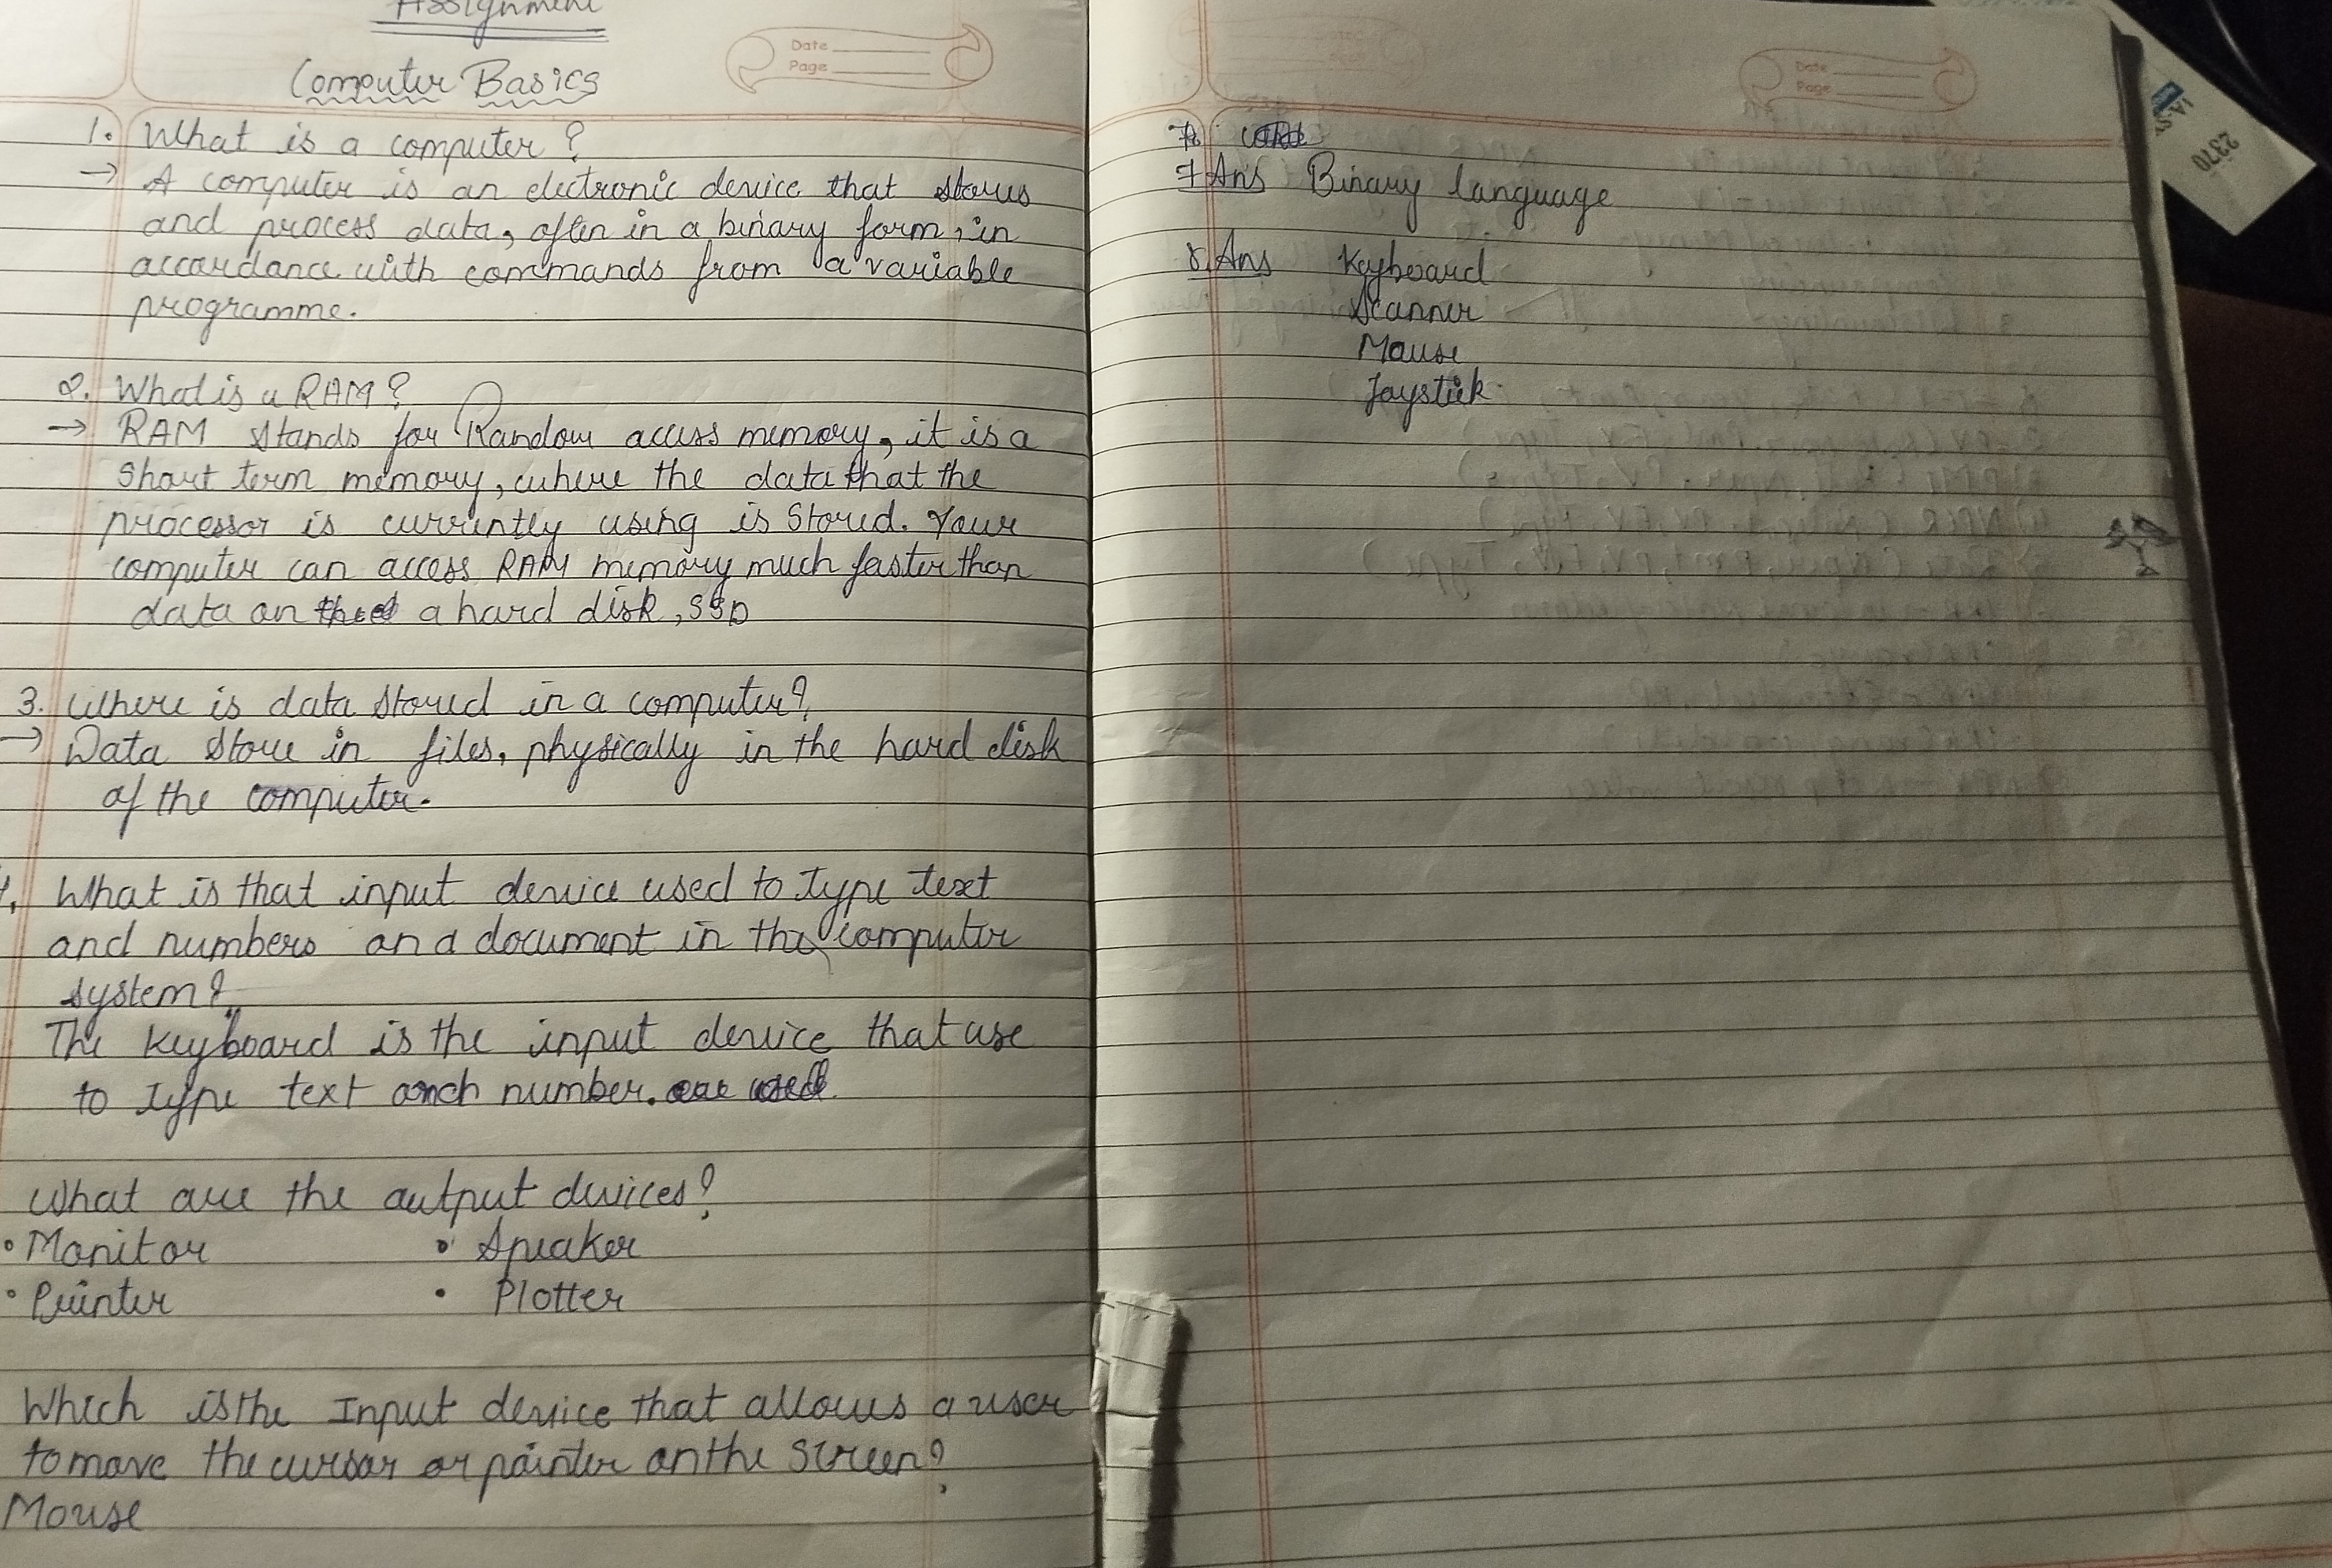 Assignment
Computer Basics
Date
Page
1. What is a computer?
→ A computer is an electronic device that stores
and process data, often in a binary form, in
accordance with commands from a variable
programme.
2. What is a RAM?
→ RAM stands for Random access memory, it is a
short term memory, where the data that the
processor is currently using is stored. Your
computer can access RAM memory much faster than
data on a hard disk, SSD
3. Where is data stored in a computer?
→ Data store in files, physically in the hard disk
of the computer.
What is that input device used to type text
and numbers on a document in the computer
system?
The keyboard is the input device that use
to type text and number.
What are the output devices?
• Monitor • Speaker
• Printer • Plotter
Which is the Input device that allows a user
to move the cursor or pointer on the screen?
Mouse
Date
Page
7 Ans Binary language
8. Ans Keyboard
Scanner
Mouse
Joystick
2370